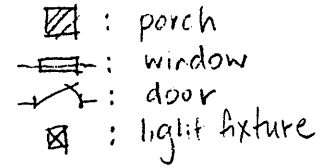 : porch
: window
: door
: light fixture